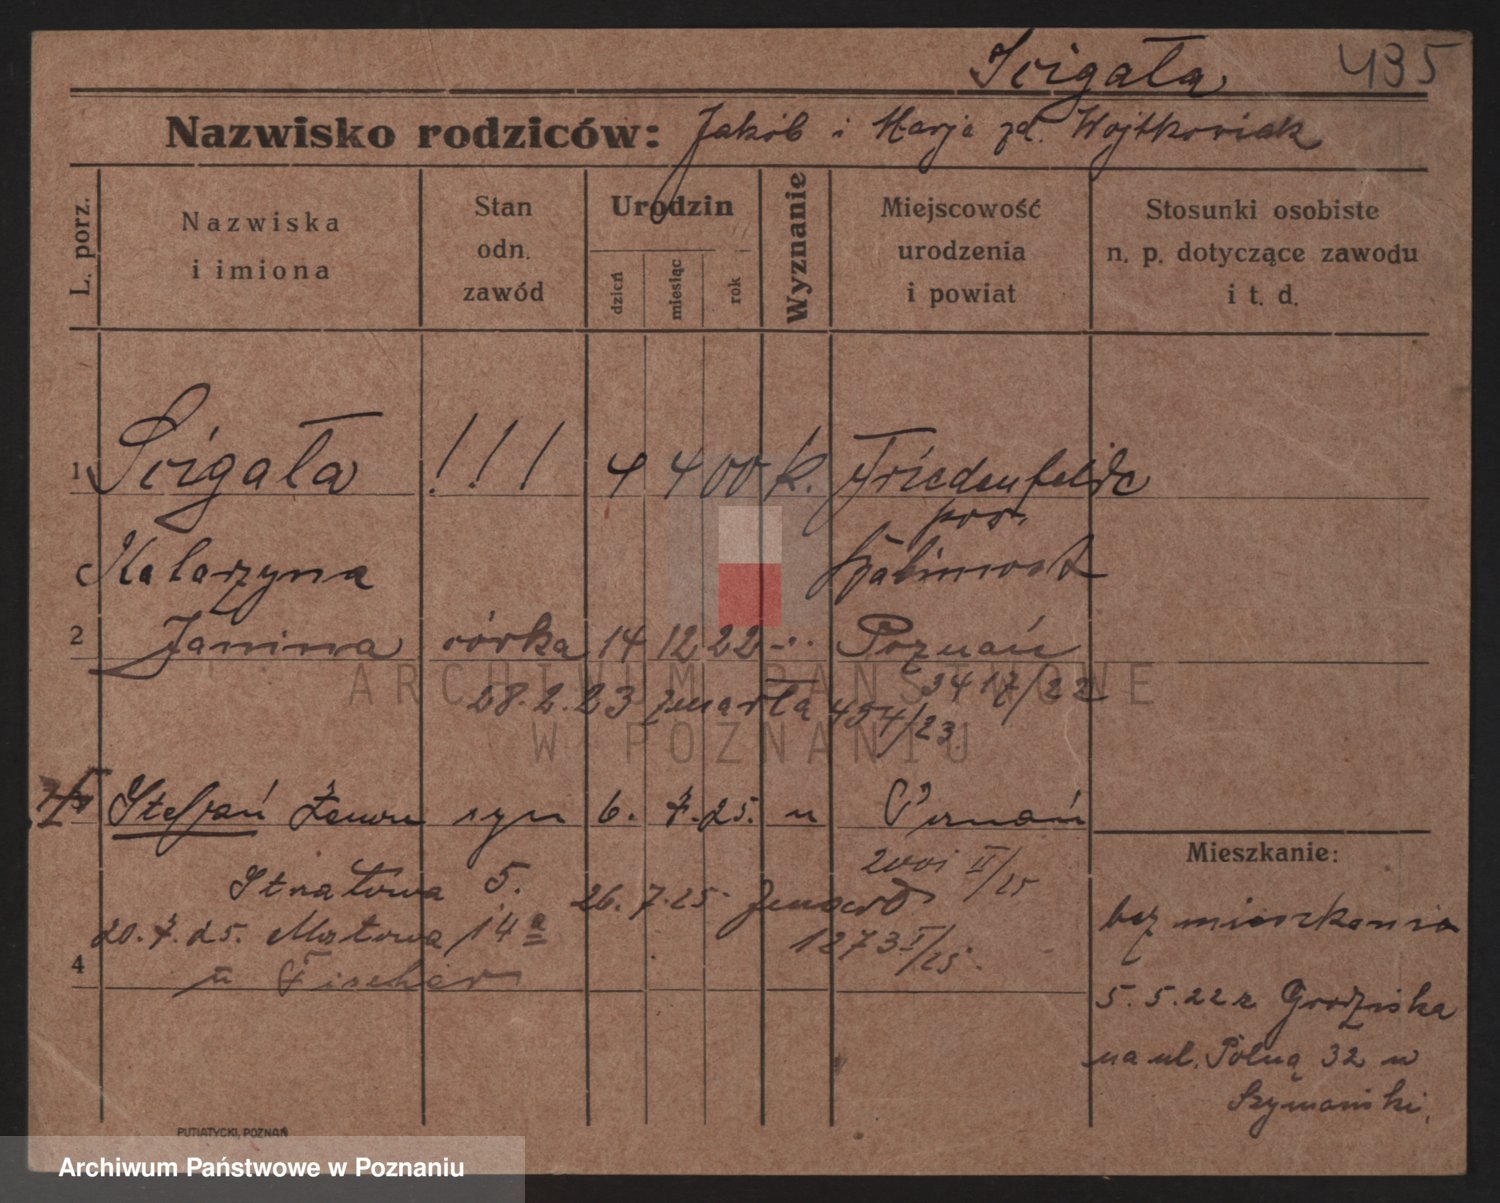 Ścigała 435
Nazwisko rodziców: Jakób i Marja zd. Wojtkowiak
L. porz.
Nazwiska
i imiona
Stan
odn.
zawód
Urodzin
dzień
miesiąc
rok
Wyznanie
Miejscowość
urodzenia
i powiat
Stosunki osobiste
n. p. dotyczące zawodu
i t. d.
1 Ścigała !!! 4 4 00 k. Friedenfelde
pow.
Katarzyna
2 Janina córka 14 12 22 -"- Poznań
3417/22
28.2.23 zmarła 454/23
Stefan Zenon syn 6. 7. 25. " Poznań
2001 II/25
Strałowa 5. 26. 7. 25 zmarł
20.7.25. Mostowa 14a 1273 I/25.
4 u Fischer
Mieszkanie:
bez mieszkania
5.5.22 z Grodziska
na ul. Polną 32 u
Szymański.
PUTIATYCKI, POZNAŃ
ARCHIWUM PAŃSTWOWE
W POZNANIU
Archiwum Państwowe w Poznaniu